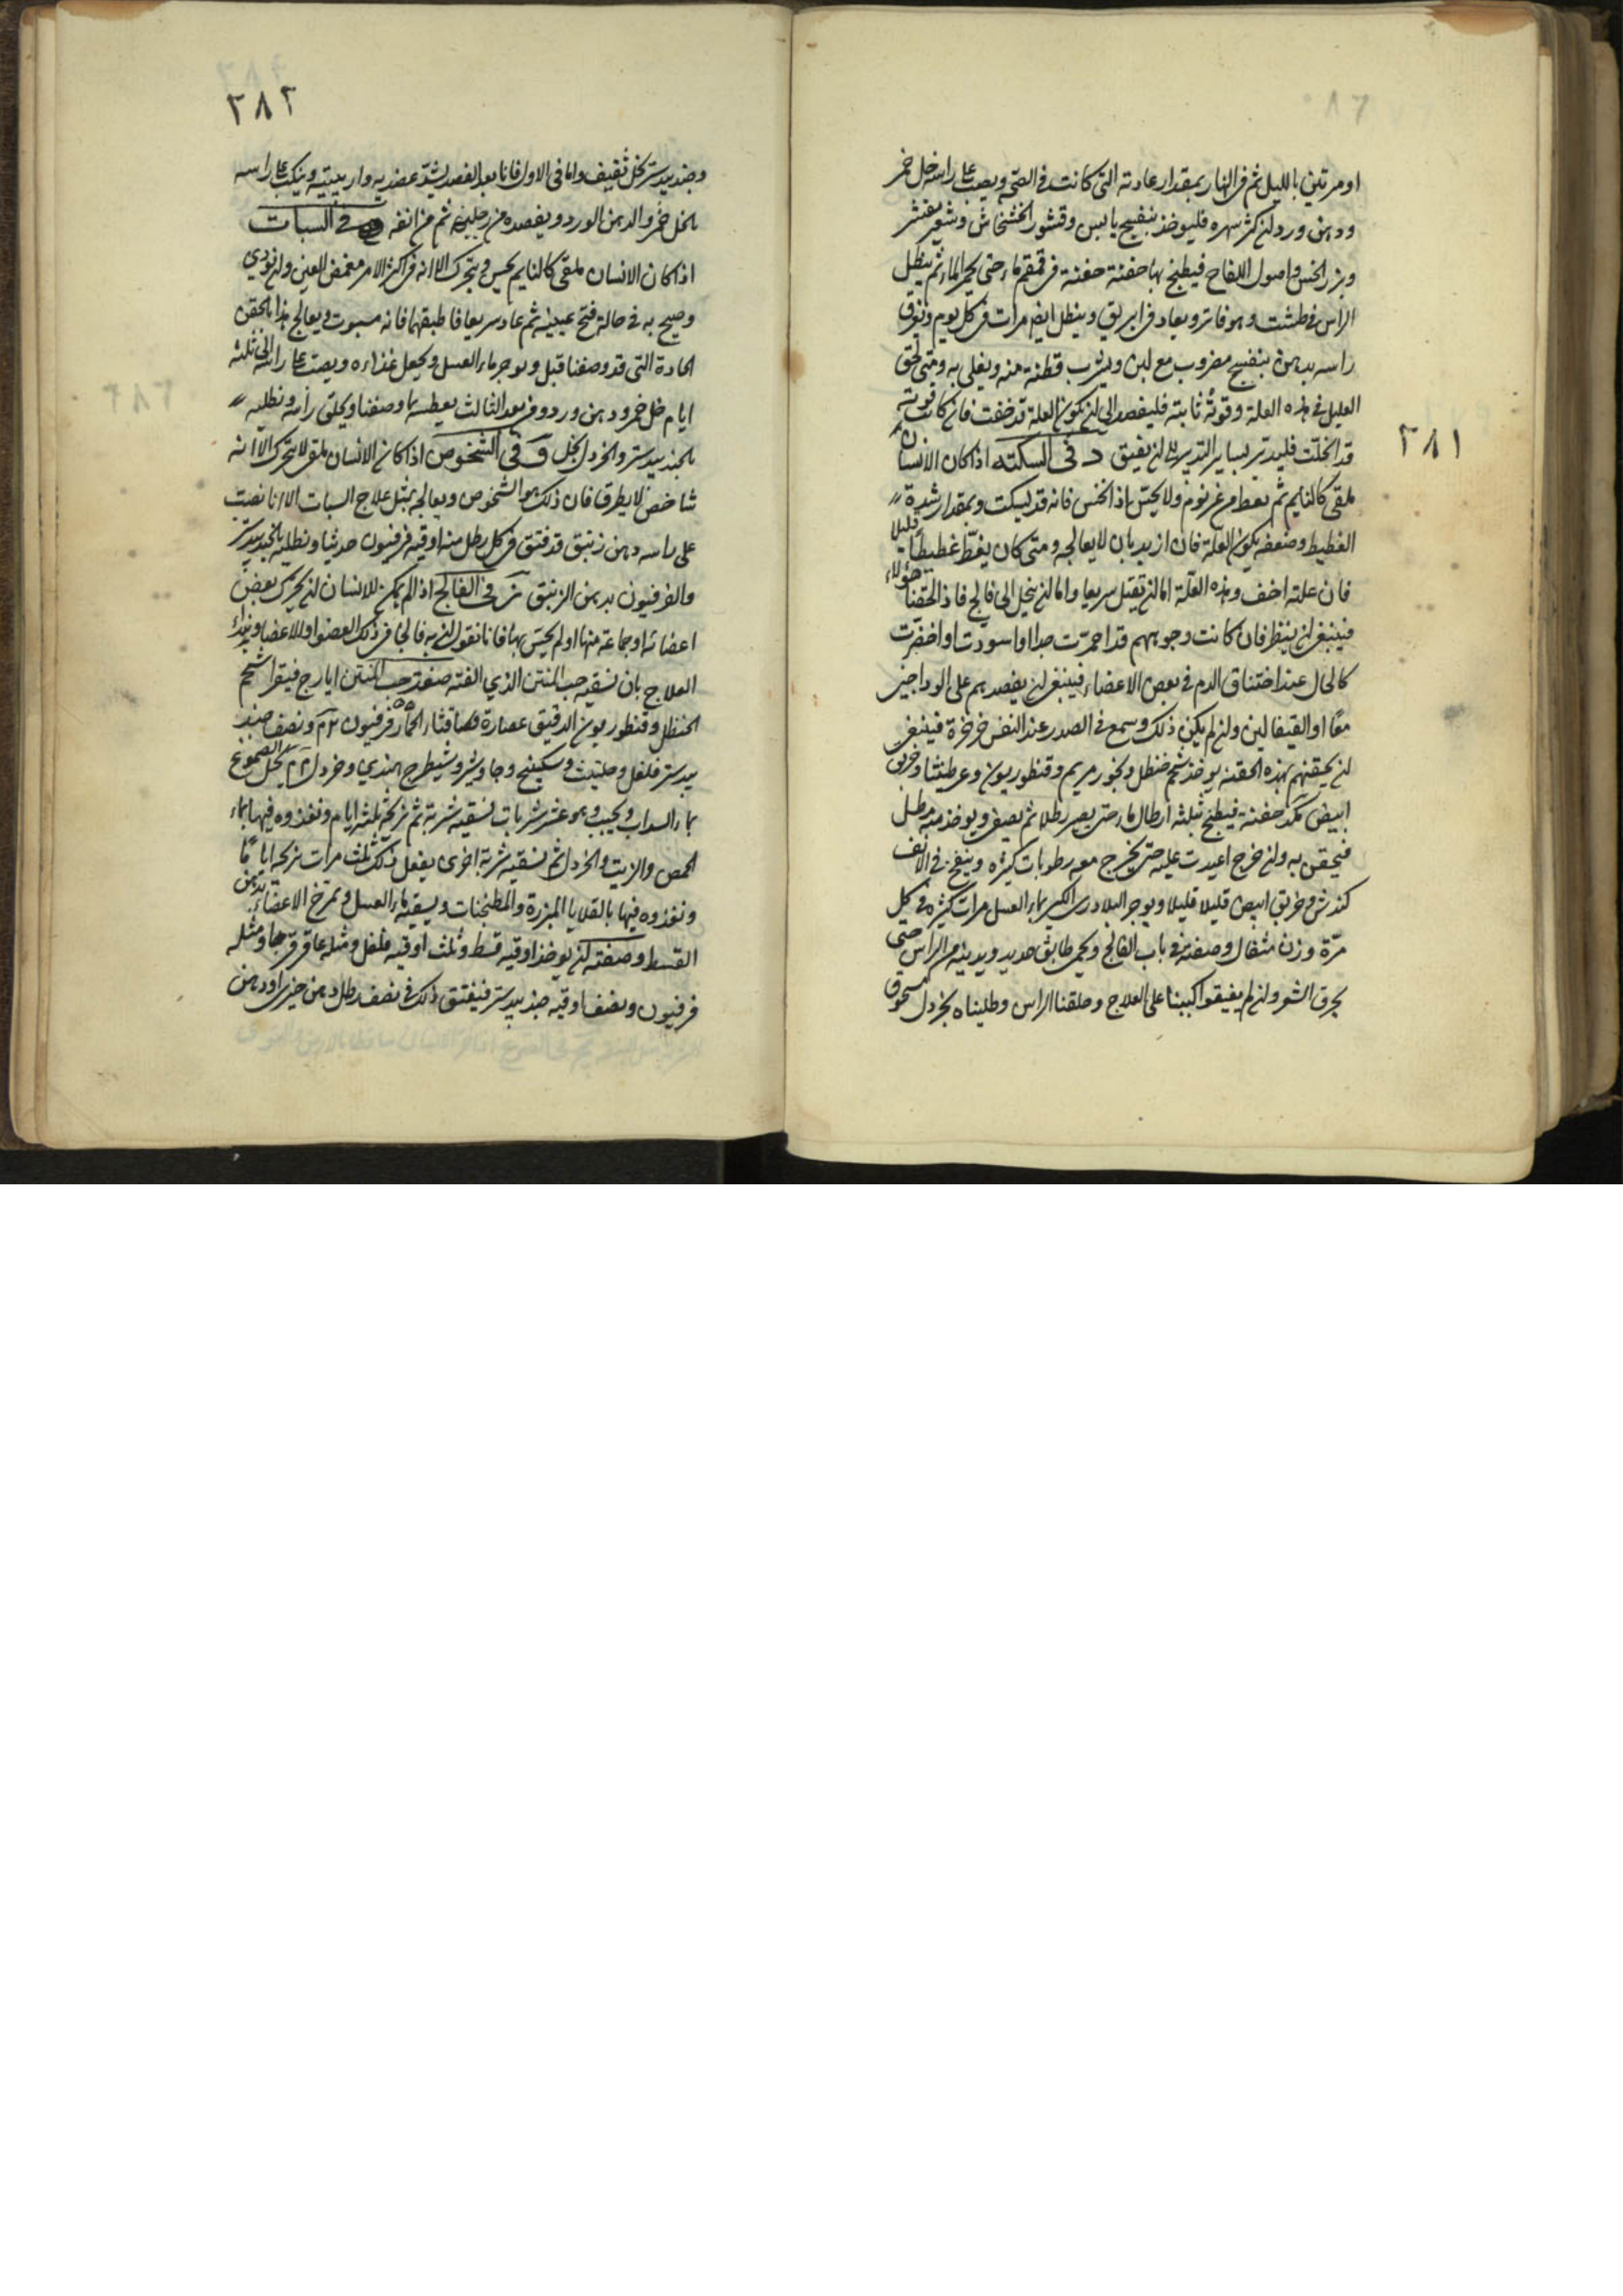 ٢٨١
او مرتين بالليل ثم فى النهار بمقدار عادته التى كانت فى الصحة ويصب على راسه خل خمر
ودهن ورد وان كثر سهره فليوخذ بنفسج يابس وقشور الخشخاش وشعير مقشر
وبزر الخس واصول اللفاح فيطبخ بها حفنة حفنة فى قمقم ماء حتى يحمر الماء ثم ينطل
الراس فى طشت وهو فاتر ويعاد فى ابريق وينطل ايضا مرات فى كل يوم ويغرق
راسه بدهن بنفسج مضروب مع لبن ويشرب قطنة منه ويغلى به ومتى لحق
العليل فى هذه العلة وقوته ثابتة فليفصد الى ان يكون العلة قد خفت فان كانت قوته
قد انحلت فليدبر بساير التدبير الى ان يفيق د فى السكتة اذا كان الانسان
ملقى كالنايم ثم يغط من غير نوم ولا يحس اذا نخس فانه قد اسكت وبمقدار شدة
الغطيط وضعفه يكون العلة فان ازبد بان لا يعالجه ومتى كان يغط غطيطا قليلا
فان علته اخف وهذه العلة اما ان تقتل سريعا واما ان ينحل الى فالج فاذا لحقنا هولاء
فينبغى ان ينظر فان كانت وجوههم قد احمرت جدا او اسودت او اخضرت
كالحال عند اختناق الدم فى بعض الاعضاء فينبغى ان يفصدهم على الوداجين
معًا او القيفالين وان لم يكن ذلك وسمع فى الصدر عند النفس خرخرة فينبغى
ان يحقنهم بهذه الحقنة يوخذ شحم حنظل وبخور مريم وقنطوريون وعرطنيثا وخربق
ابيض حفنة فيطبخ بثلثة ارطال ماء حتى يصير رطلا ثم يصفى ويوخذ منه رطل
فيحقن به وان خرج اعيدت عليه حتى يخرج معه رطوبات كثيرة وينفخ فى الانف
كندش وخربق ابيض قليلا قليلا ويوجر البلادرى الكبير بماء العسل مرات كثيرة فى كل
مرّة وزن مثقال وصفته فى باب الفالج ويحمى طابق حديد ويدنيه من الراس حتى
يحرق الشعر وان لم يفيقوا اكببنا على العلاج وحلقنا الراس وطليناه بخردل مسحوق
٢٨٢
وجندبيدستر بخل ثقيف واما فى الاول فانا بعد الفصد نشد عضديه واربيتيه ويسكب على راسه
بالخل خمر والدهن الورد ويفصده من رجليه ثم من انفه فى السبات
اذا كان الانسان ملقى كالنايم يحس ويتحرك الا انه فى اكثر الامر مغمض العين وان نودى
وصيح به فى حالة فتح عينيه ثم عاد سريعا فاطبقهما فانه مسبوت ويعالج هذا بالحقن
الحادة التى قد وصفنا قبل ويوجر ماء العسل ويجعل غذاءه ويصب على راسه الى ثلثة
ايام خل خمر ودهن ورد ومن بعد الثالث يعطسه بما وصفنا ويحلق رأسه ونطليه
بالجندبيدستر والخردل بخل و فى الشخوص اذا كان الانسان ملقى لا يتحرك الا انه
شاخص لا يطرف فان ذلك هو الشخوص ويعالجه بمثل علاج السبات الا انا نصب
على راسه دهن زنبق قد فتق فى كل رطل منه اوقيه فرفيون حديثا ونطليه بالجندبيدستر
والفرفيون بدهن الزنبق ز فى الفالج اذا لم يمكن للانسان ان يحرك بعض
اعضائه او جماعة منها او لم يحس بها فانا نقول ان به فالجا فى ذلك العضو او الاعضا ويبداء
العلاج بان نسقيه حب المنتن الذي الفته صفة حب المنتن ايارج فيقرا شحم
الحنظل وقنطوريون الدقيق عصارة قثاء الحمار فرفيون ونصف جند
بيدستر فلفل وحلتيت وسكبينج وجاوشير وشيطرج هندي وخردل يحل الصموغ
بماء السداب ويحبب وهو عشر شربات نسقيه شربة ثم نريحه ثلثة ايام ونغذوه فيها بماء
الحمص والزيت والخردل ثم نسقيه شربة اخرى يفعل ذلك ثلث مرات نريحه ايامًا
ونغذوه فيها بالقلايا المبزرة والمطجنات ويسقيه ماء العسل وتمرخ الاعضاء بدهن
القسط وصفته ان يوخذ اوقيه قسط وثلث اوقيه فلفل ومثله عاقرقرحا ومثله
فرفيون ونصف اوقيه جندبيدستر فيفتق ذلك فى نصف رطل دهن خيرى او دهن